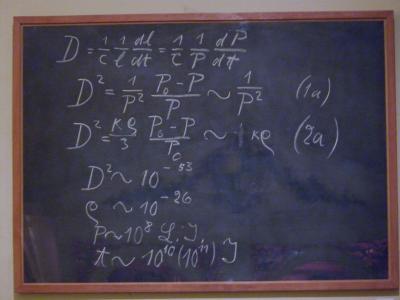 D = 1/c 1/l dl/dt = 1/c 1/P dP/dt
D² = 1/P² (P₀-P)/P ~ 1/P² (1a)
D² = κρ/3 (P₀-P)/P₀ ~ 1/3 κρ (2a)
D² ~ 10⁻⁵³
ρ ~ 10⁻²⁶
P ~ 10⁸ L.J
t ~ 10¹⁰(10¹¹) J